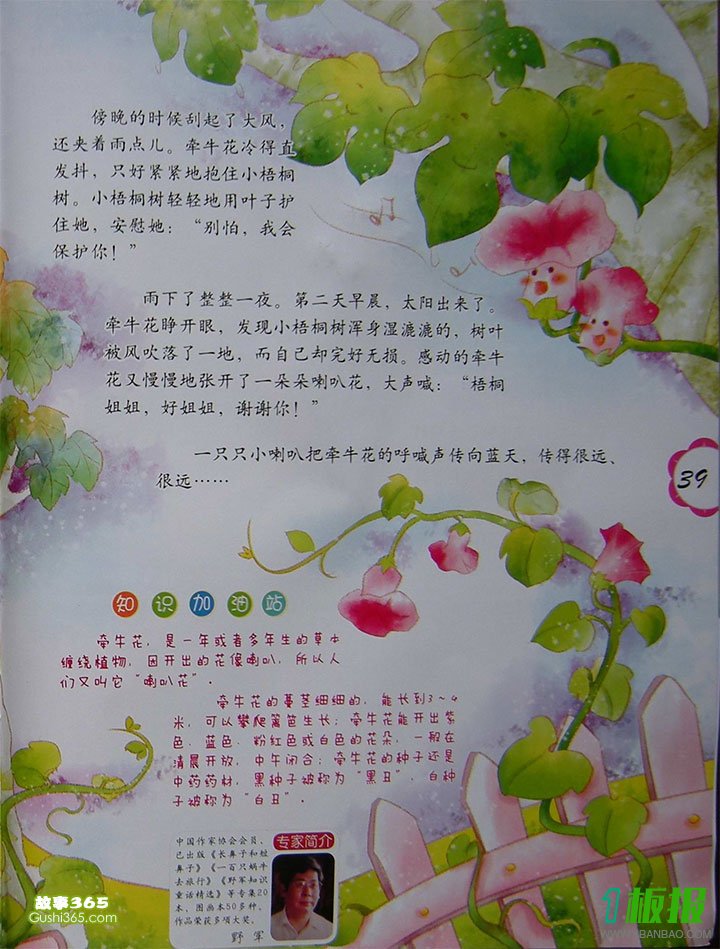 傍晚的时候刮起了大风，
还夹着雨点儿。牵牛花冷得直
发抖，只好紧紧地抱住小梧桐
树。小梧桐树轻轻地用叶子护
住她，安慰她：“别怕，我会
保护你！”
雨下了整整一夜。第二天早晨，太阳出来了。
牵牛花睁开眼，发现小梧桐树浑身湿漉漉的，树叶
被风吹落了一地，而自己却完好无损。感动的牵牛
花又慢慢地张开了一朵朵喇叭花，大声喊：“梧桐
姐姐，好姐姐，谢谢你！”
一只只小喇叭把牵牛花的呼喊声传向蓝天，传得很远、
很远……
39
知识加油站
牵牛花，是一年或者多年生的草本
缠绕植物，因开出的花像喇叭，所以人
们又叫它“喇叭花”。
牵牛花的蔓茎细细的，能长到3~4
米，可以攀爬篱笆生长；牵牛花能开出紫
色、蓝色、粉红色或白色的花朵，一般在
清晨开放，中午闭合；牵牛花的种子还是
中药药材，黑种子被称为“黑丑”，白种
子被称为“白丑”。
专家简介
中国作家协会会员，
已出版《长鼻子和短
鼻子》《一百只蜗牛
去旅行》《野军知识
童话精选》等专集20
本，图画本50多种，
作品荣获多项大奖。
野军
故事365
Gushi365.com
1板报
WWW.1BANBAO.COM